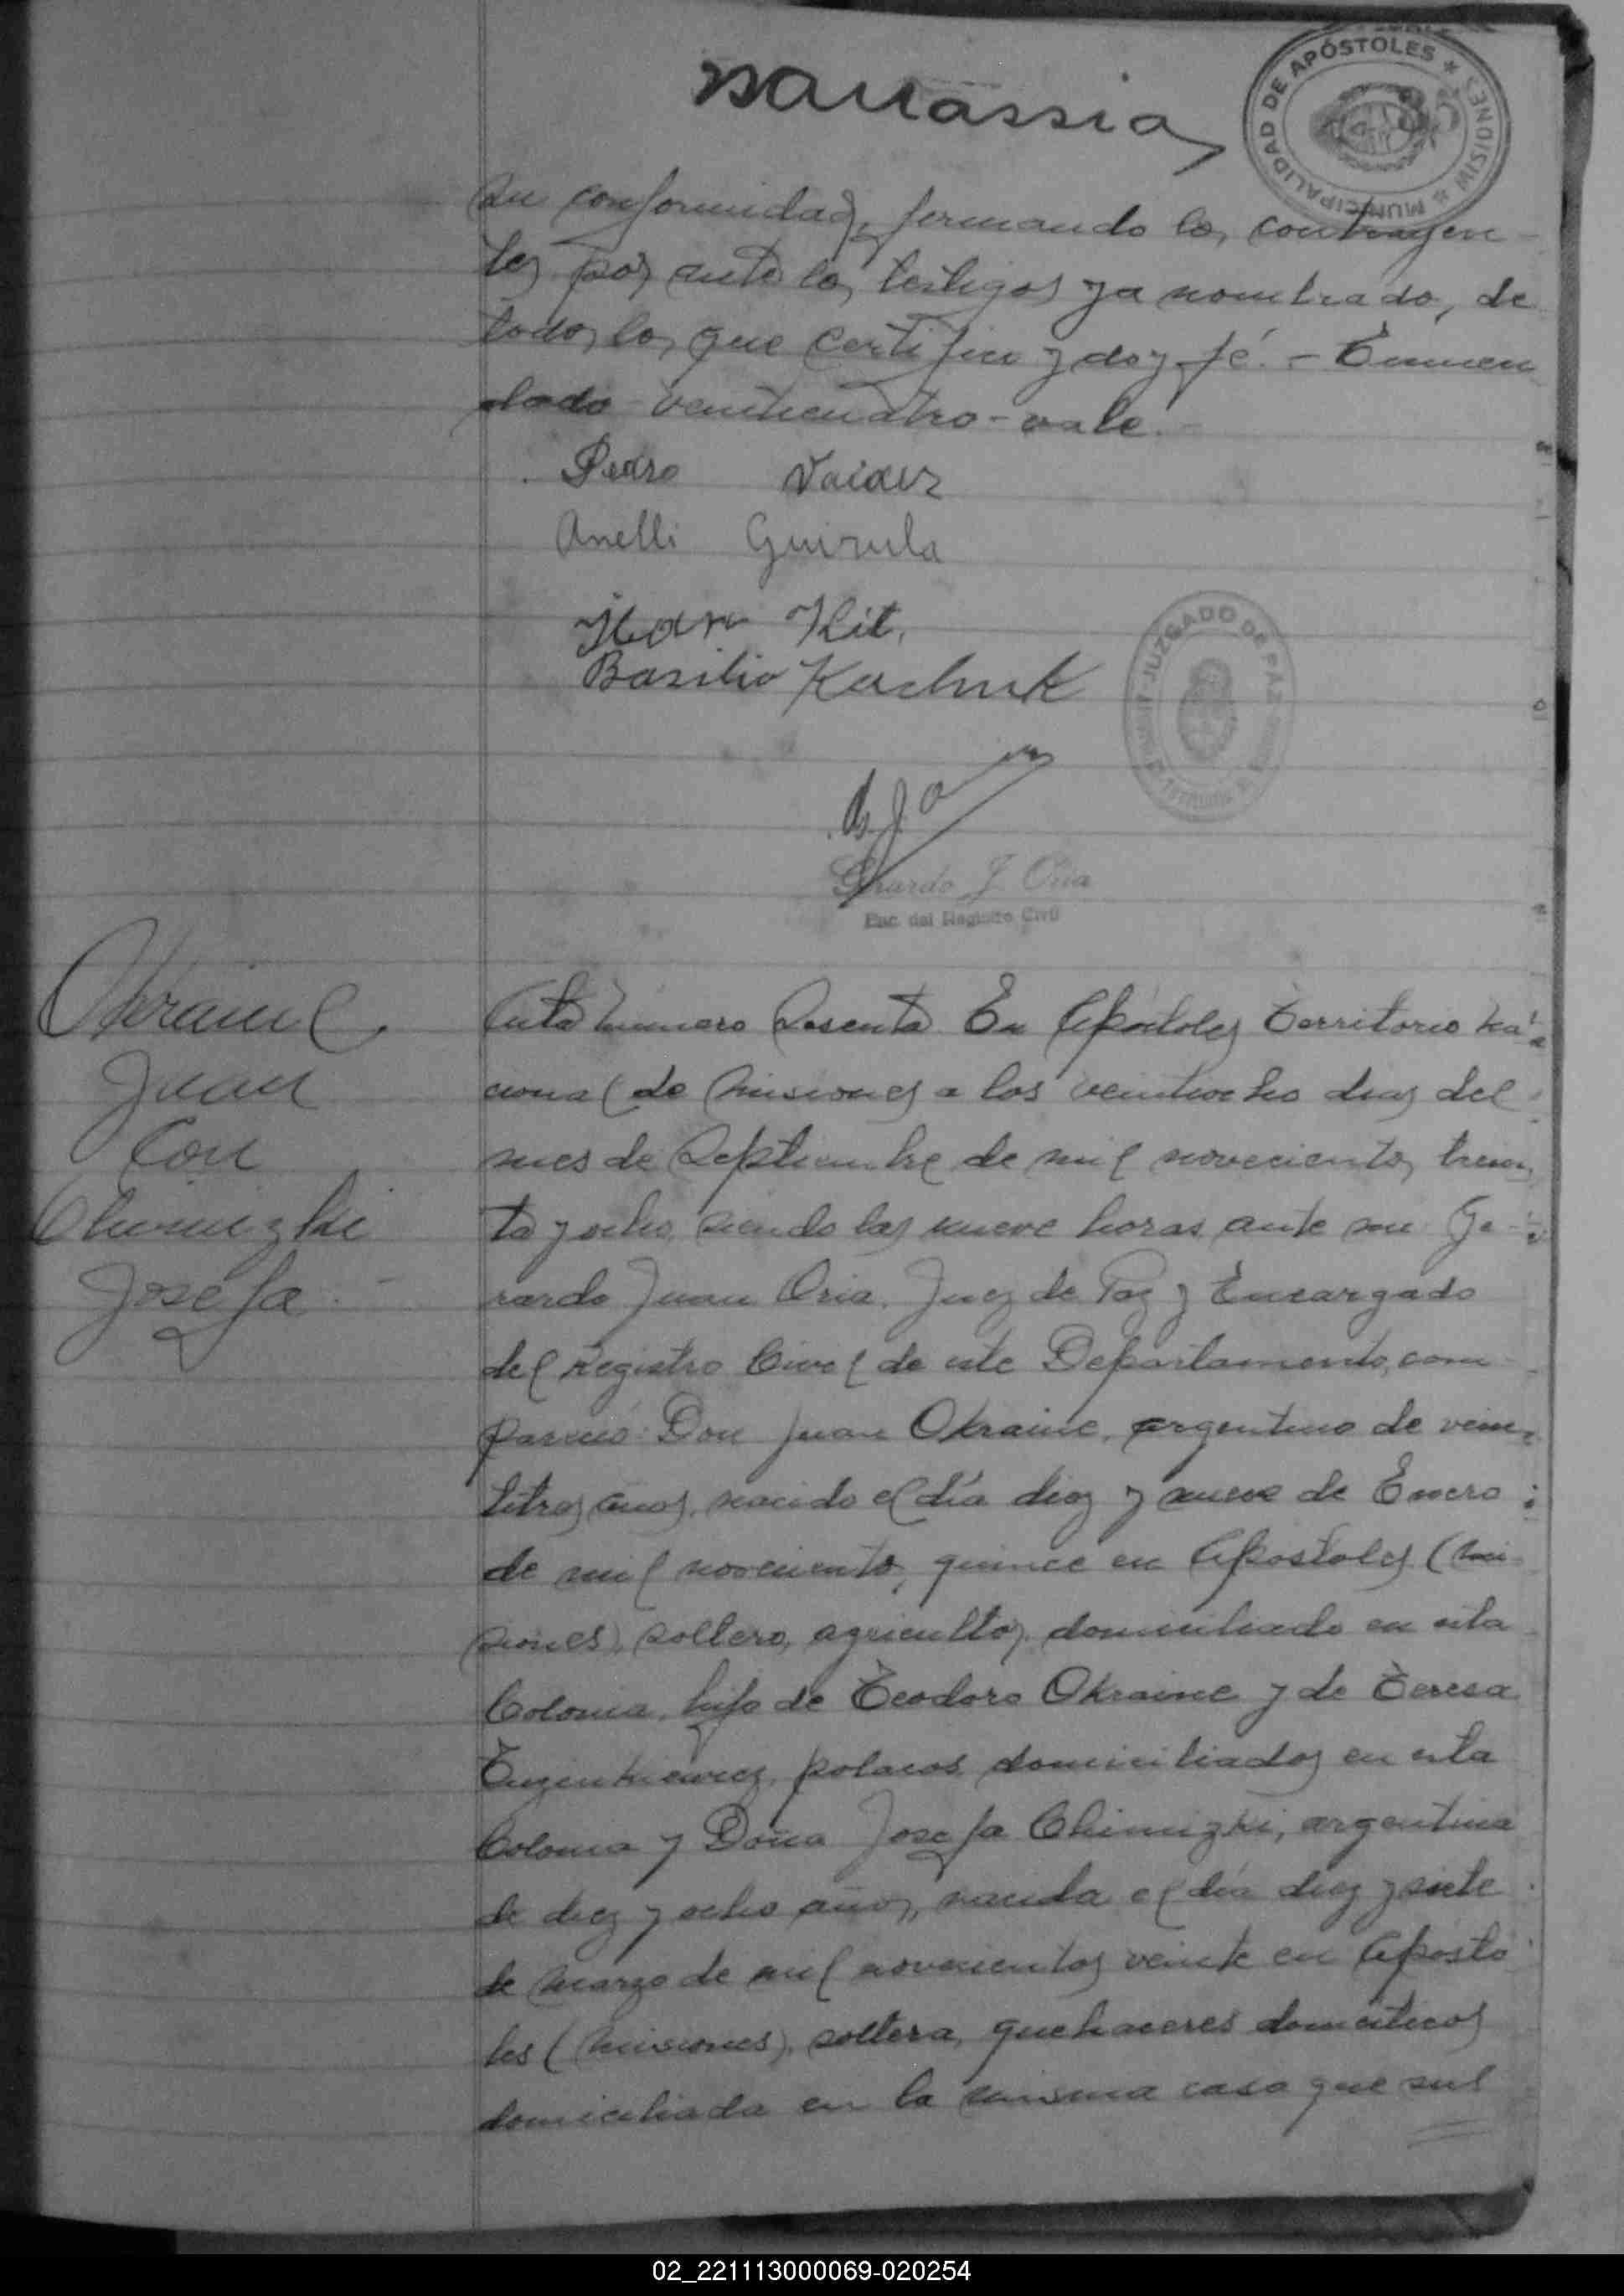 MUNICIPALIDAD DE APÓSTOLES * MISIONES *
su conformidad, firmando los contrayen-
tes por ante los testigos ya nombrados, de
todo lo que certifico y doy fé. - Enmen
dado - veinticuatro - vale. -
Pedro Valdez
Anelli Guirula
Kit.
Basilio Kachuk
JUZGADO DE PAZ
Gerardo J. Oria
Enc. del Registro Civil
Okraine
Juan
Con
Chimizki
Josefa. -
Acta número Sesenta En Apóstoles Territorio Na-
cional de Misiones a los veintiocho dias del
mes de Septiembre de mil novecientos trein
ta y ocho, siendo las nueve horas, ante mi Ge-
rardo Juan Oria. Juez de Paz y Encargado
del Registro Civil de este Departamento, com-
pareció: Don Juan Okraine, argentino de vein
titres años, nacido el día diez y nueve de Enero
de mil novecientos quince en Apostoles (Mi-
siones), soltero, agricultor, domiciliado en esta
Colonia, hijo de Teodoro Okraine y de Teresa
polacos domiciliados en esta
Colonia y Doña Josefa Chimizki, argentina
de diez y ocho años, nacida el día diez y siete
de Marzo de mil novecientos veinte en Aposto
les (Misiones), soltera, quehaceres domésticos
domiciliada en la misma casa que sus
02_221113000069-020254